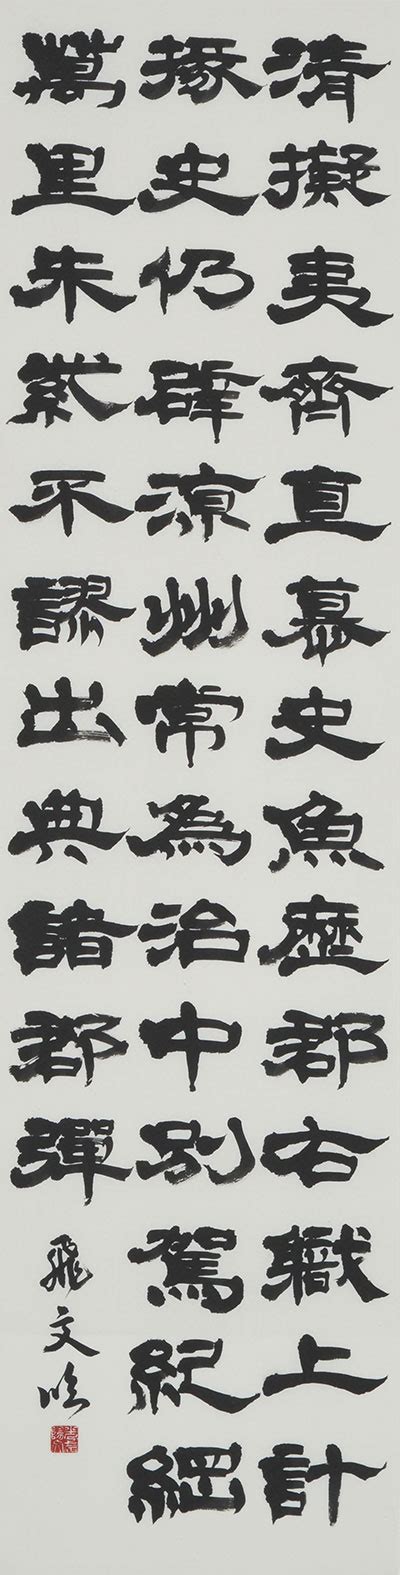 清擬夷齊直慕史魚歷郡右職上計
掾史仍辟涼州常為治中別駕紀綱
萬里朱紫不謬出典諸郡彈
飛文